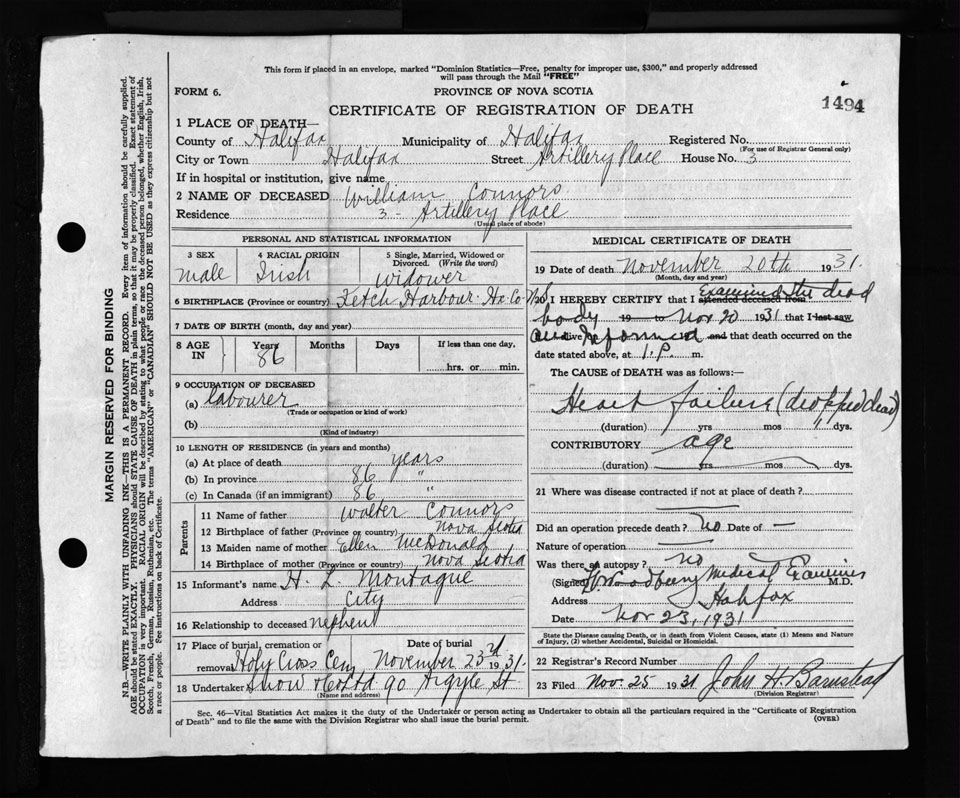 This form if placed in an envelope, marked "Dominion Statistics—Free, penalty for improper use, $300," and properly addressed
will pass through the Mail "FREE"
FORM 6.
PROVINCE OF NOVA SCOTIA
CERTIFICATE OF REGISTRATION OF DEATH
1494
1 PLACE OF DEATH—
County of Halifax Municipality of Halifax Registered No.
(For use of Registrar General only)
City or Town Halifax Street Artillery Place House No. 3
If in hospital or institution, give name
2 NAME OF DECEASED William Connors
Residence 3 - Artillery Place
(Usual place of abode)
PERSONAL AND STATISTICAL INFORMATION
3 SEX male
4 RACIAL ORIGIN Irish
5 Single, Married, Widowed or
Divorced. (Write the word)
widower
6 BIRTHPLACE (Province or country) Ketch Harbour Ha. Co N.S
7 DATE OF BIRTH (month, day and year)
8 AGE IN Years 86 Months Days If less than one day,
hrs. or min.
9 OCCUPATION OF DECEASED
(a) labourer
(Trade or occupation or kind of work)
(b)
(Kind of industry)
10 LENGTH OF RESIDENCE (in years and months)
(a) At place of death years
(b) In province 86 "
(c) In Canada (if an immigrant) 86 "
Parents
11 Name of father Walter Connors
12 Birthplace of father (Province or country) Nova Scotia
13 Maiden name of mother Ellen McDonald
14 Birthplace of mother (Province or country) Nova Scotia
15 Informant's name H. L. Montague
Address City
16 Relationship to deceased nephew
17 Place of burial, cremation or removal Holy Cross Cem
Date of burial November 23rd 1931.
18 Undertaker Snow & Co Ltd 90 Argyle St
(Name and address)
MEDICAL CERTIFICATE OF DEATH
19 Date of death November 20th 1931.
(Month, day and year)
20 I HEREBY CERTIFY that I attended deceased from Examined the dead
body 19 to Nov 20 1931 that I last saw
alive and informed and that death occurred on the
date stated above, at 1. P. m.
The CAUSE of DEATH was as follows:—
Heart failure (dropped dead)
(duration) yrs mos dys.
CONTRIBUTORY age
(duration) yrs mos dys.
21 Where was disease contracted if not at place of death?
Did an operation precede death? No Date of —
Nature of operation
Was there an autopsy? No
(Signed) Woodbury Medical Examiner M.D.
Address Halifax
Date Nov 23, 1931
State the Disease causing Death, or in death from Violent Causes, state (1) Means and Nature
of Injury, (2) whether Accidental, Suicidal or Homicidal.
22 Registrar's Record Number
23 Filed Nov. 25 1931 John H. Barnstead
(Division Registrar)
Sec. 46—Vital Statistics Act makes it the duty of the Undertaker or person acting as Undertaker to obtain all the particulars required in the "Certificate of Registration
of Death" and to file the same with the Division Registrar who shall issue the burial permit.
(OVER)
MARGIN RESERVED FOR BINDING
N.B.—WRITE PLAINLY WITH UNFADING INK—THIS IS A PERMANENT RECORD. Every item of information should be carefully supplied.
AGE should be stated EXACTLY. PHYSICIANS should STATE CAUSE OF DEATH in plain terms, so that it may be properly classified. Exact statement of
OCCUPATION is very important. RACIAL ORIGIN will be described by stating to what people or race the deceased person belonged, whether English, Irish,
Scotch, French, German, Russian, Ruthenian, etc. The terms "AMERICAN" or "CANADIAN" SHOULD NOT BE USED as they express citizenship but not
a race or people. See instructions on back of Certificate.